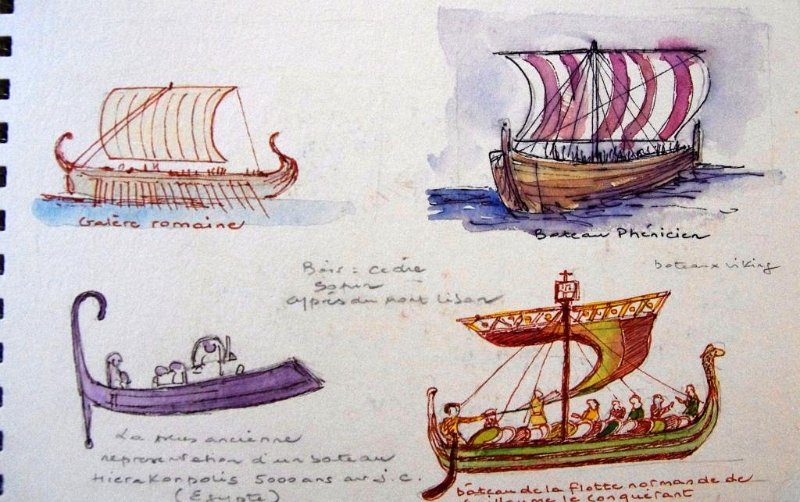 Galère romaine
Bateau Phénicien
bateaux viking
Bois : cèdre
sapin
cyprès du mont Liban
La plus ancienne
representation d'un bateau
HieraKonpolis 5000 ans av J.C.
(Egypte)
bâteau de la flotte normande de
Guillaume le conquérant